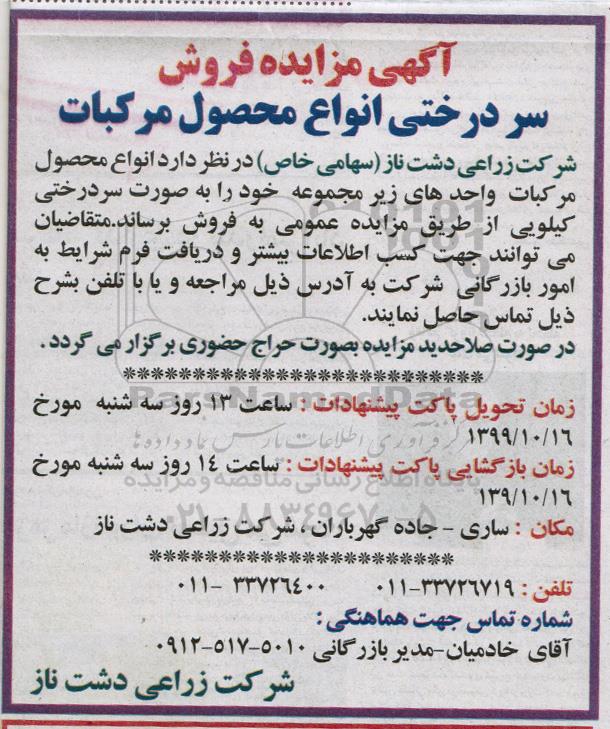 آگهی مزایده فروش
سر درختی انواع محصول مرکبات
شرکت زراعی دشت ناز (سهامی خاص) در نظر دارد انواع محصول
مرکبات واحد های زیر مجموعه خود را به صورت سردرختی
کیلویی از طریق مزایده عمومی به فروش برساند.متقاضیان
می توانند جهت کسب اطلاعات بیشتر و دریافت فرم شرایط به
امور بازرگانی شرکت به آدرس ذیل مراجعه و یا با تلفن بشرح
ذیل تماس حاصل نمایند.
در صورت صلاحدید مزایده بصورت حراج حضوری برگزار می گردد.
ParsNamadData
زمان تحویل پاکت پیشنهادات : ساعت ۱۳ روز سه شنبه مورخ
۱۳۹۹/۱۰/۱۶
مرکز فرآوری اطلاعات پارس نماد داده ها
زمان بازگشایی پاکت پیشنهادات : ساعت ۱۴ روز سه شنبه مورخ
۱۳۹/۱۰/۱۶
پایگاه اطلاع رسانی مناقصه و مزایده
مکان : ساری - جاده گهرباران ، شرکت زراعی دشت ناز
تلفن : ۳۳۷۲۶۷۱۹-۰۱۱ ۳۳۷۲۶۴۰۰ -۰۱۱
شماره تماس جهت هماهنگی :
آقای خادمیان-مدیر بازرگانی ۵۰۱۰-۵۱۷-۰۹۱۲
شرکت زراعی دشت ناز